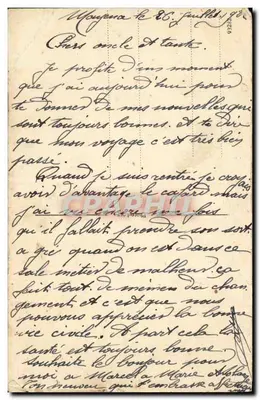 Mayence le 26 juillet
Chers oncle et tante.
Je profite d'un moment
que j'ai aujourd'hui pour
te donner de mes nouvelles qui
sont toujours bonnes. et te dire
que mon voyage s'est très bien
passé.
Quand je suis rentré je croyais
avoir d'avantage le cafard mais
j'ai vu encore une fois
qu'il fallait prendre son sort
a gré quand on est dans ce
sale métier de malheur. ça
fait tout de même du chan-
gement et c'est que nous
pouvons apprécier la bonne
vie civile. A part cela la
santé est toujours bonne
souhaite le bonjour pour
moi a Marcel Marie
Ton neveu qui t'embrasse